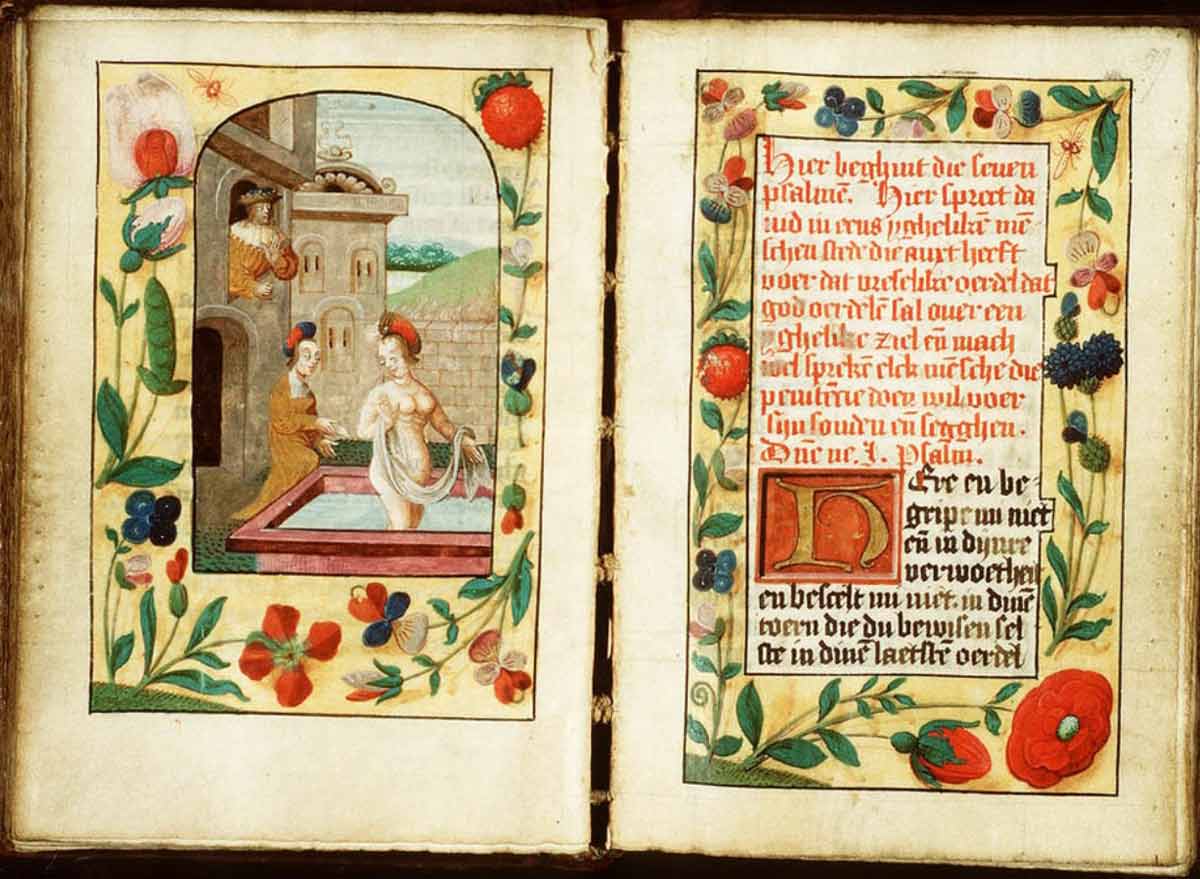 Hier beghint die seuen
psalmē. Hier spreet da
uid in eens ygheliks̄ mē
schen stede die anxt heeft
voer dat vreselike oerdel dat
god oerdelē sal ouer een
yghelike ziel eñ mach
wel sprekē elck mēsche die
penitēcie doen wil voer
sijn sonden eñ segghen.
Dñe ne. I. Psalm.
HEre en be-
gripe mi niet
eñ in dijnre
verwoetheit
en bescelt mi niet. in dinē
toern die du bewisen sel
ste in dinē laetstē oerdel